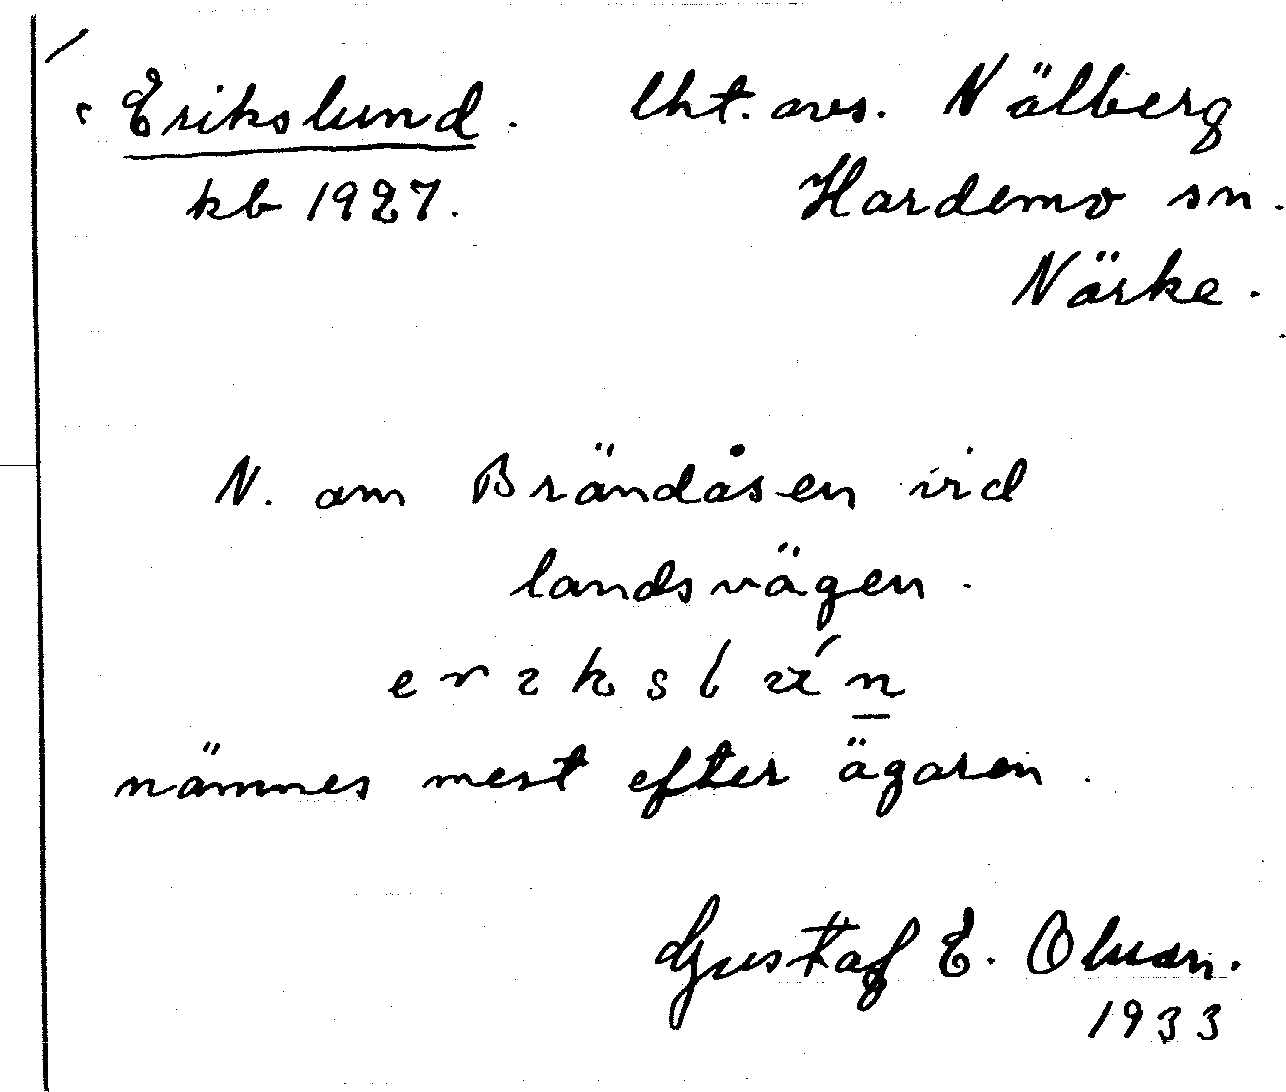 Erikslund. lht. avs. Nälberg
kb 1927. Hardemo sn.
Närke.
N. om Brändåsen vid
landsvägen.
nämnes mest efter ägaren.
Gustaf E.
1933